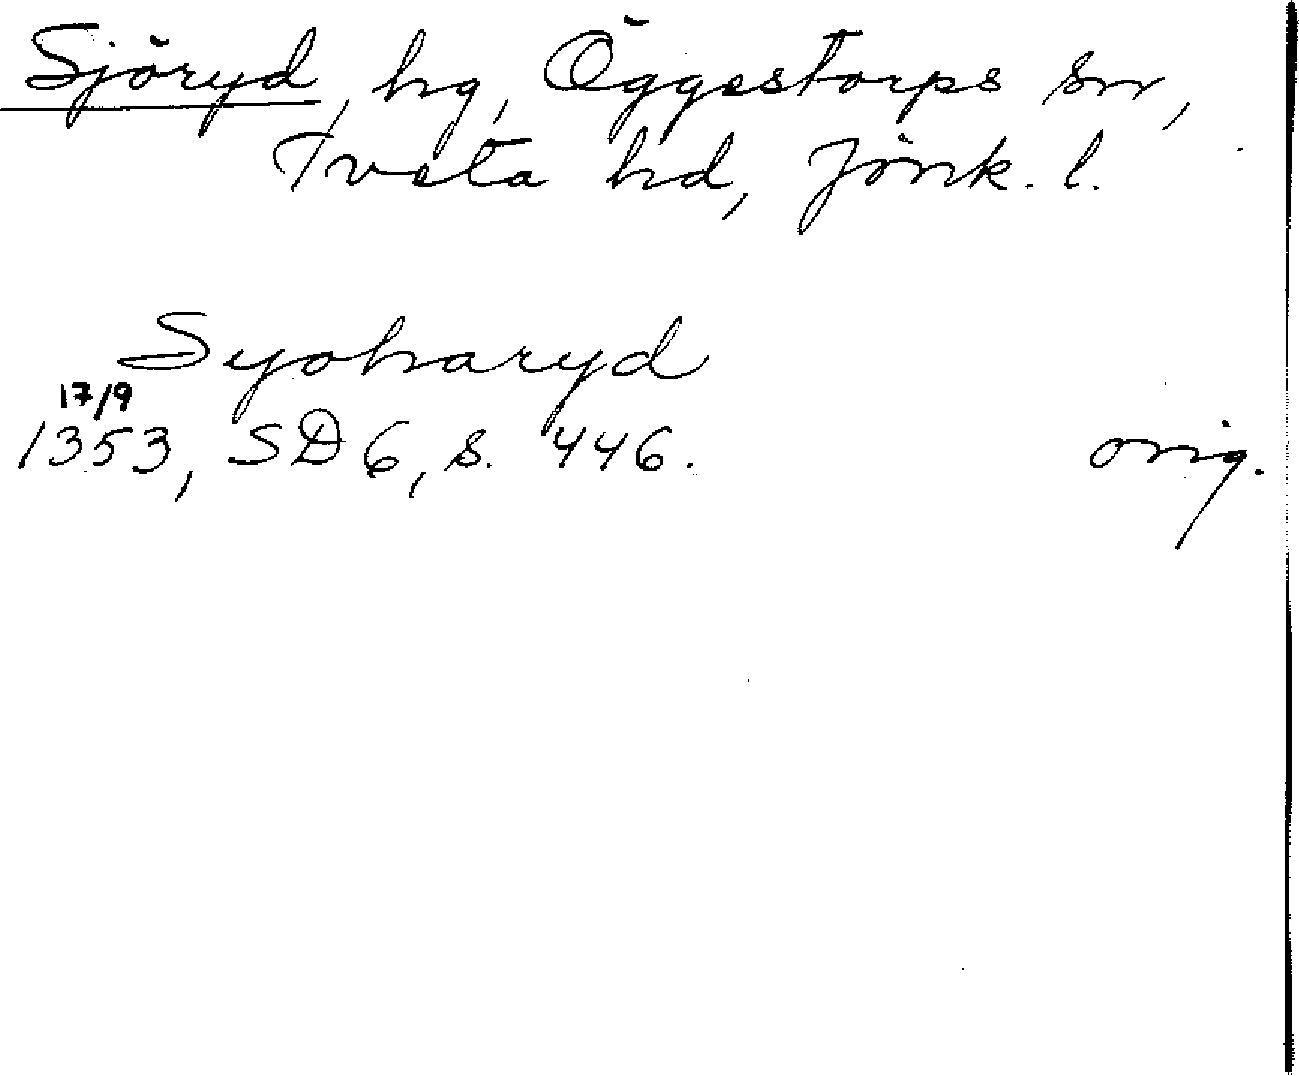 Sjöryd, hg, Öggestorps sn,
Tveta hd, Jönk. l.
Syoharyd
17/9
1353, SD 6, s. 446.
orig.